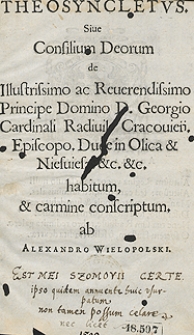 THEOSYNCLETVS.
Siue
Consilium Deorum
de
Illustrissimo ac Reuerendissimo
Principe Domino D. Georgio
Cardinali Radiuil Cracouień.
Episcopo. Duce in Olica &
Niesuież &c. &c.
habitum,
& carmine conscriptum,
ab
ALEXANDRO WIELOPOLSKI.
EST MEI SZOMOVII CERTE
ipso quidem annuente huic usur-
patum
non tamen possum celare
nec licet
18.597